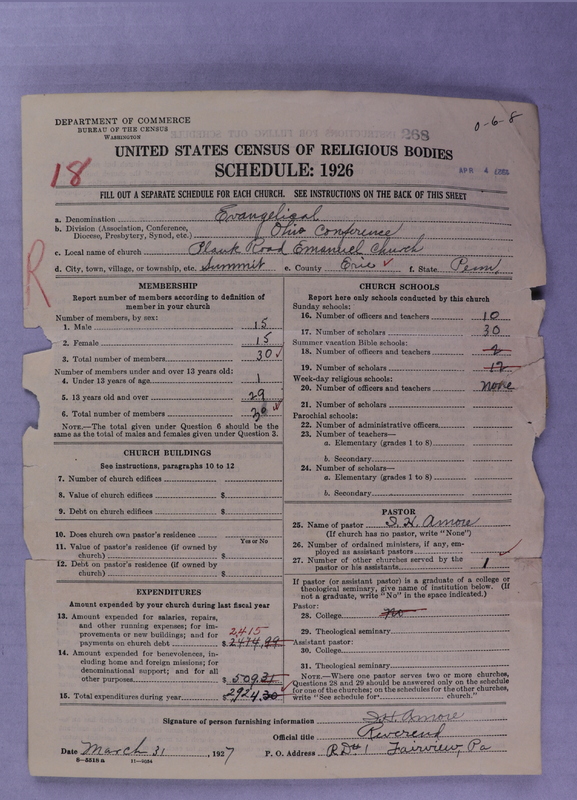 DEPARTMENT OF COMMERCE
BUREAU OF THE CENSUS
WASHINGTON
0-6-8
268
UNITED STATES CENSUS OF RELIGIOUS BODIES
18
SCHEDULE: 1926
APR 4
FILL OUT A SEPARATE SCHEDULE FOR EACH CHURCH. SEE INSTRUCTIONS ON THE BACK OF THIS SHEET
a. Denomination Evangelical
b. Division (Association, Conference, Diocese, Presbytery, Synod, etc.) Ohio Conference
c. Local name of church Plank Road Emanuel Church
d. City, town, village, or township, etc. Summit e. County Erie ✓ f. State Penn,
R
MEMBERSHIP
Report number of members according to definition of member in your church
Number of members, by sex:
1. Male 15
2. Female 15
3. Total number of members 30 ✓
Number of members under and over 13 years old:
4. Under 13 years of age 1
5. 13 years old and over 29
6. Total number of members 30 ✓
NOTE.—The total given under Question 6 should be the same as the total of males and females given under Question 3.
CHURCH BUILDINGS
See instructions, paragraphs 10 to 12
7. Number of church edifices
8. Value of church edifices $
9. Debt on church edifices $
10. Does church own pastor's residence
Yes or No
11. Value of pastor's residence (if owned by church) $
12. Debt on pastor's residence (if owned by church) $
EXPENDITURES
Amount expended by your church during last fiscal year
13. Amount expended for salaries, repairs, and other running expenses; for improvements or new buildings; and for payments on church debt $ 2414.99
2415
14. Amount expended for benevolences, including home and foreign missions; for denominational support; and for all other purposes $ 509.31
15. Total expenditures during year $ 2924.30 ✓
CHURCH SCHOOLS
Report here only schools conducted by this church
Sunday schools:
16. Number of officers and teachers 10
17. Number of scholars 30
Summer vacation Bible schools:
18. Number of officers and teachers 2
19. Number of scholars 12
Week-day religious schools:
20. Number of officers and teachers none
21. Number of scholars
Parochial schools:
22. Number of administrative officers
23. Number of teachers—
a. Elementary (grades 1 to 8)
b. Secondary
24. Number of scholars—
a. Elementary (grades 1 to 8)
b. Secondary
PASTOR
25. Name of pastor S. H. Amore
(If church has no pastor, write "None")
26. Number of ordained ministers, if any, employed as assistant pastors
27. Number of other churches served by the pastor or his assistants 1 ✓
If pastor (or assistant pastor) is a graduate of a college or theological seminary, give name of institution below. (If not a graduate, write "No" in the space indicated.)
Pastor:
28. College no
29. Theological seminary
Assistant pastor:
30. College
31. Theological seminary
NOTE.—Where one pastor serves two or more churches, Questions 28 and 29 should be answered only on the schedule for one of the churches; on the schedules for the other churches, write "See schedule for church."
Signature of person furnishing information S. H. Amore
Official title Reverend
Date March 31, 1927 P. O. Address R D # 1 Fairview, Pa
8—5518 a 11—9034